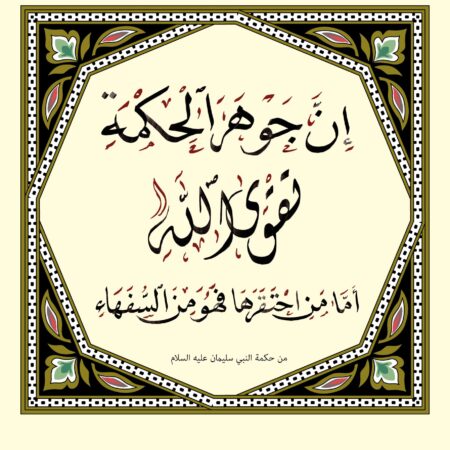 إِنَّ جَوْهَرَ الْحِكْمَةِ
تَقْوَى اللَّهِ
أَمَّا مَنِ احْتَقَرَهَا فَهُوَ مِنَ السُّفَهَاءِ
من حكمة النبي سليمان عليه السلام